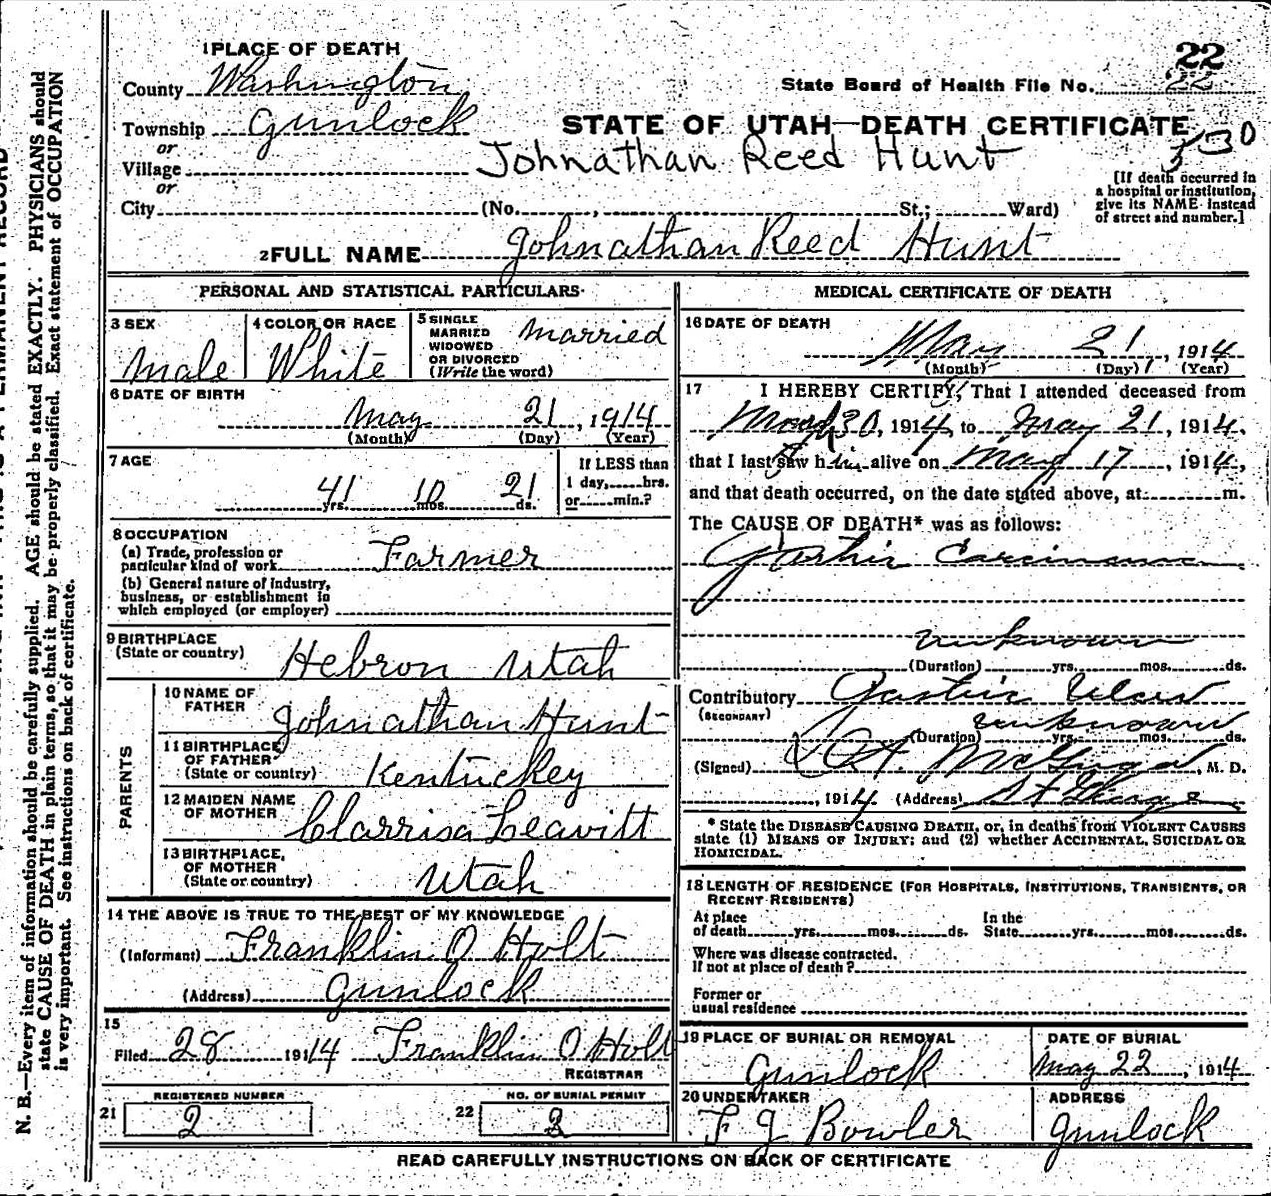 1 PLACE OF DEATH
22
County Washington
State Board of Health File No. 22
Township Gunlock
STATE OF UTAH—DEATH CERTIFICATE
or
Johnathan Reed Hunt
530
Village
or
[If death occurred in
a hospital or institution,
give its NAME instead
of street and number.]
City (No. , St.; Ward)
2 FULL NAME Johnathan Reed Hunt
PERSONAL AND STATISTICAL PARTICULARS
3 SEX
Male
4 COLOR OR RACE
White
5 SINGLE
MARRIED
WIDOWED
OR DIVORCED
(Write the word)
Married
6 DATE OF BIRTH
May 21, 1914
(Month) (Day) (Year)
7 AGE
41 10 21
yrs. mos. ds.
If LESS than
1 day, hrs.
or min.?
8 OCCUPATION
(a) Trade, profession or
particular kind of work
Farmer
(b) General nature of Industry,
business, or establishment in
which employed (or employer)
9 BIRTHPLACE
(State or country)
Hebron Utah
PARENTS
10 NAME OF
FATHER
Johnathan Hunt
11 BIRTHPLACE
OF FATHER
(State or country)
Kentuckey
12 MAIDEN NAME
OF MOTHER
Clarrisa Leavitt
13 BIRTHPLACE,
OF MOTHER
(State or country)
Utah
14 THE ABOVE IS TRUE TO THE BEST OF MY KNOWLEDGE
(Informant) Franklin O Holt
(Address) Gunlock
15
Filed 28 1914 Franklin O Holt
REGISTRAR
21
REGISTERED NUMBER
2
22
NO. OF BURIAL PERMIT
2
MEDICAL CERTIFICATE OF DEATH
16 DATE OF DEATH
May 21, 1914
(Month) (Day) (Year)
17 I HEREBY CERTIFY, That I attended deceased from
March 30, 1914, to May 21, 1914,
that I last saw him alive on May 17, 1914,
and that death occurred, on the date stated above, at m.
The CAUSE OF DEATH* was as follows:
Gastric Carcinoma
unknown
(Duration) yrs. mos. ds.
Contributory Gastric Ulcer
(SECONDARY)
unknown
(Duration) yrs. mos. ds.
(Signed) , M. D.
, 1914 (Address) St George
* State the DISEASE CAUSING DEATH, or, in deaths from VIOLENT CAUSES
state (1) MEANS OF INJURY; and (2) whether ACCIDENTAL, SUICIDAL OR
HOMICIDAL.
18 LENGTH OF RESIDENCE (FOR HOSPITALS, INSTITUTIONS, TRANSIENTS, OR
RECENT RESIDENTS)
At place
of death yrs. mos. ds.
In the
State yrs. mos. ds.
Where was disease contracted,
If not at place of death?
Former or
usual residence
19 PLACE OF BURIAL OR REMOVAL
Gunlock
DATE OF BURIAL
May 22, 1914
20 UNDERTAKER
F J Bowler
ADDRESS
Gunlock
READ CAREFULLY INSTRUCTIONS ON BACK OF CERTIFICATE
N. B.—Every item of information should be carefully supplied. AGE should be stated EXACTLY. PHYSICIANS should
state CAUSE OF DEATH in plain terms, so that it may be properly classified. Exact statement of OCCUPATION
is very important. See instructions on back of certificate.